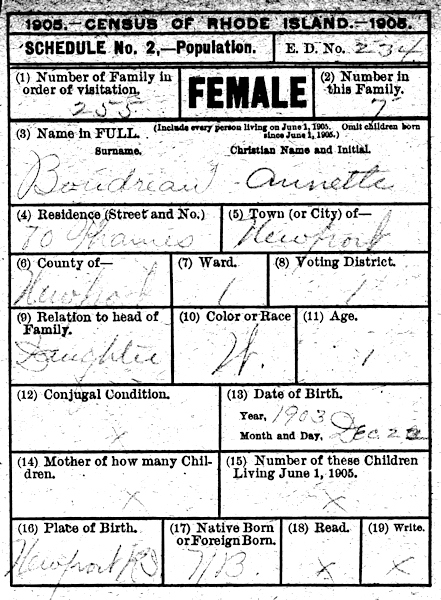 1905.—CENSUS OF RHODE ISLAND.—1905.
SCHEDULE No. 2,—Population.
E. D. No. 234
(1) Number of Family in order of visitation.
255
FEMALE
(2) Number in this Family.
7
(3) Name in FULL.
(Include every person living on June 1, 1905. Omit children born since June 1, 1905.)
Surname.
Christian Name and Initial.
Boudreau Annette
(4) Residence (Street and No.)
70 Thames
(5) Town (or City) of—
Newport
(6) County of—
Newport
(7) Ward.
1
(8) Voting District.
1
(9) Relation to head of Family.
Daughter
(10) Color or Race
W.
(11) Age.
1
(12) Conjugal Condition.
x
(13) Date of Birth.
Year, 1903
Month and Day, Dec 22
(14) Mother of how many Children.
x
(15) Number of these Children Living June 1, 1905.
x
(16) Place of Birth.
Newport RI
(17) Native Born or Foreign Born.
NB.
(18) Read.
x
(19) Write.
x